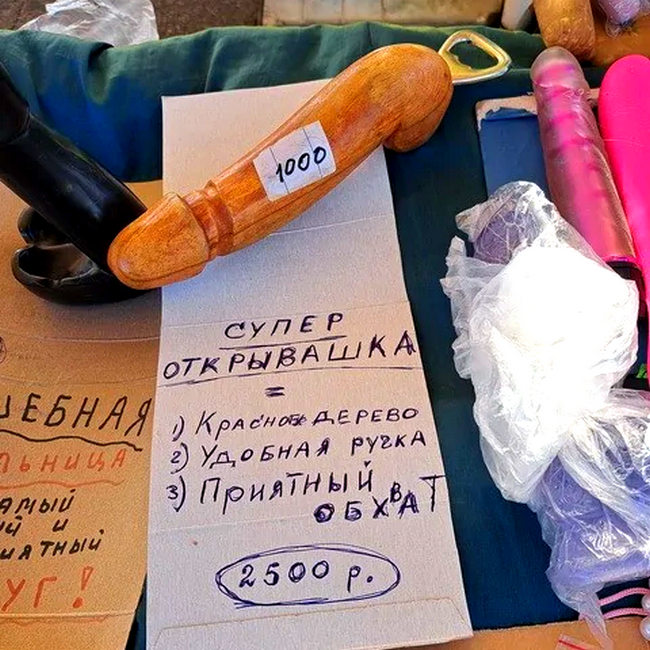 1000
СУПЕР
ОТКРЫВАШКА
=
1) КРАСНОЕ ДЕРЕВО
2) УДОБНАЯ РУЧКА
3) ПРИЯТНЫЙ
ОБХВАТ
2500 р.
ШЕБНАЯ
ЛЬНИЦА
АМЫЙ
ЫЙ И
ИЯТНЫЙ
УГ!